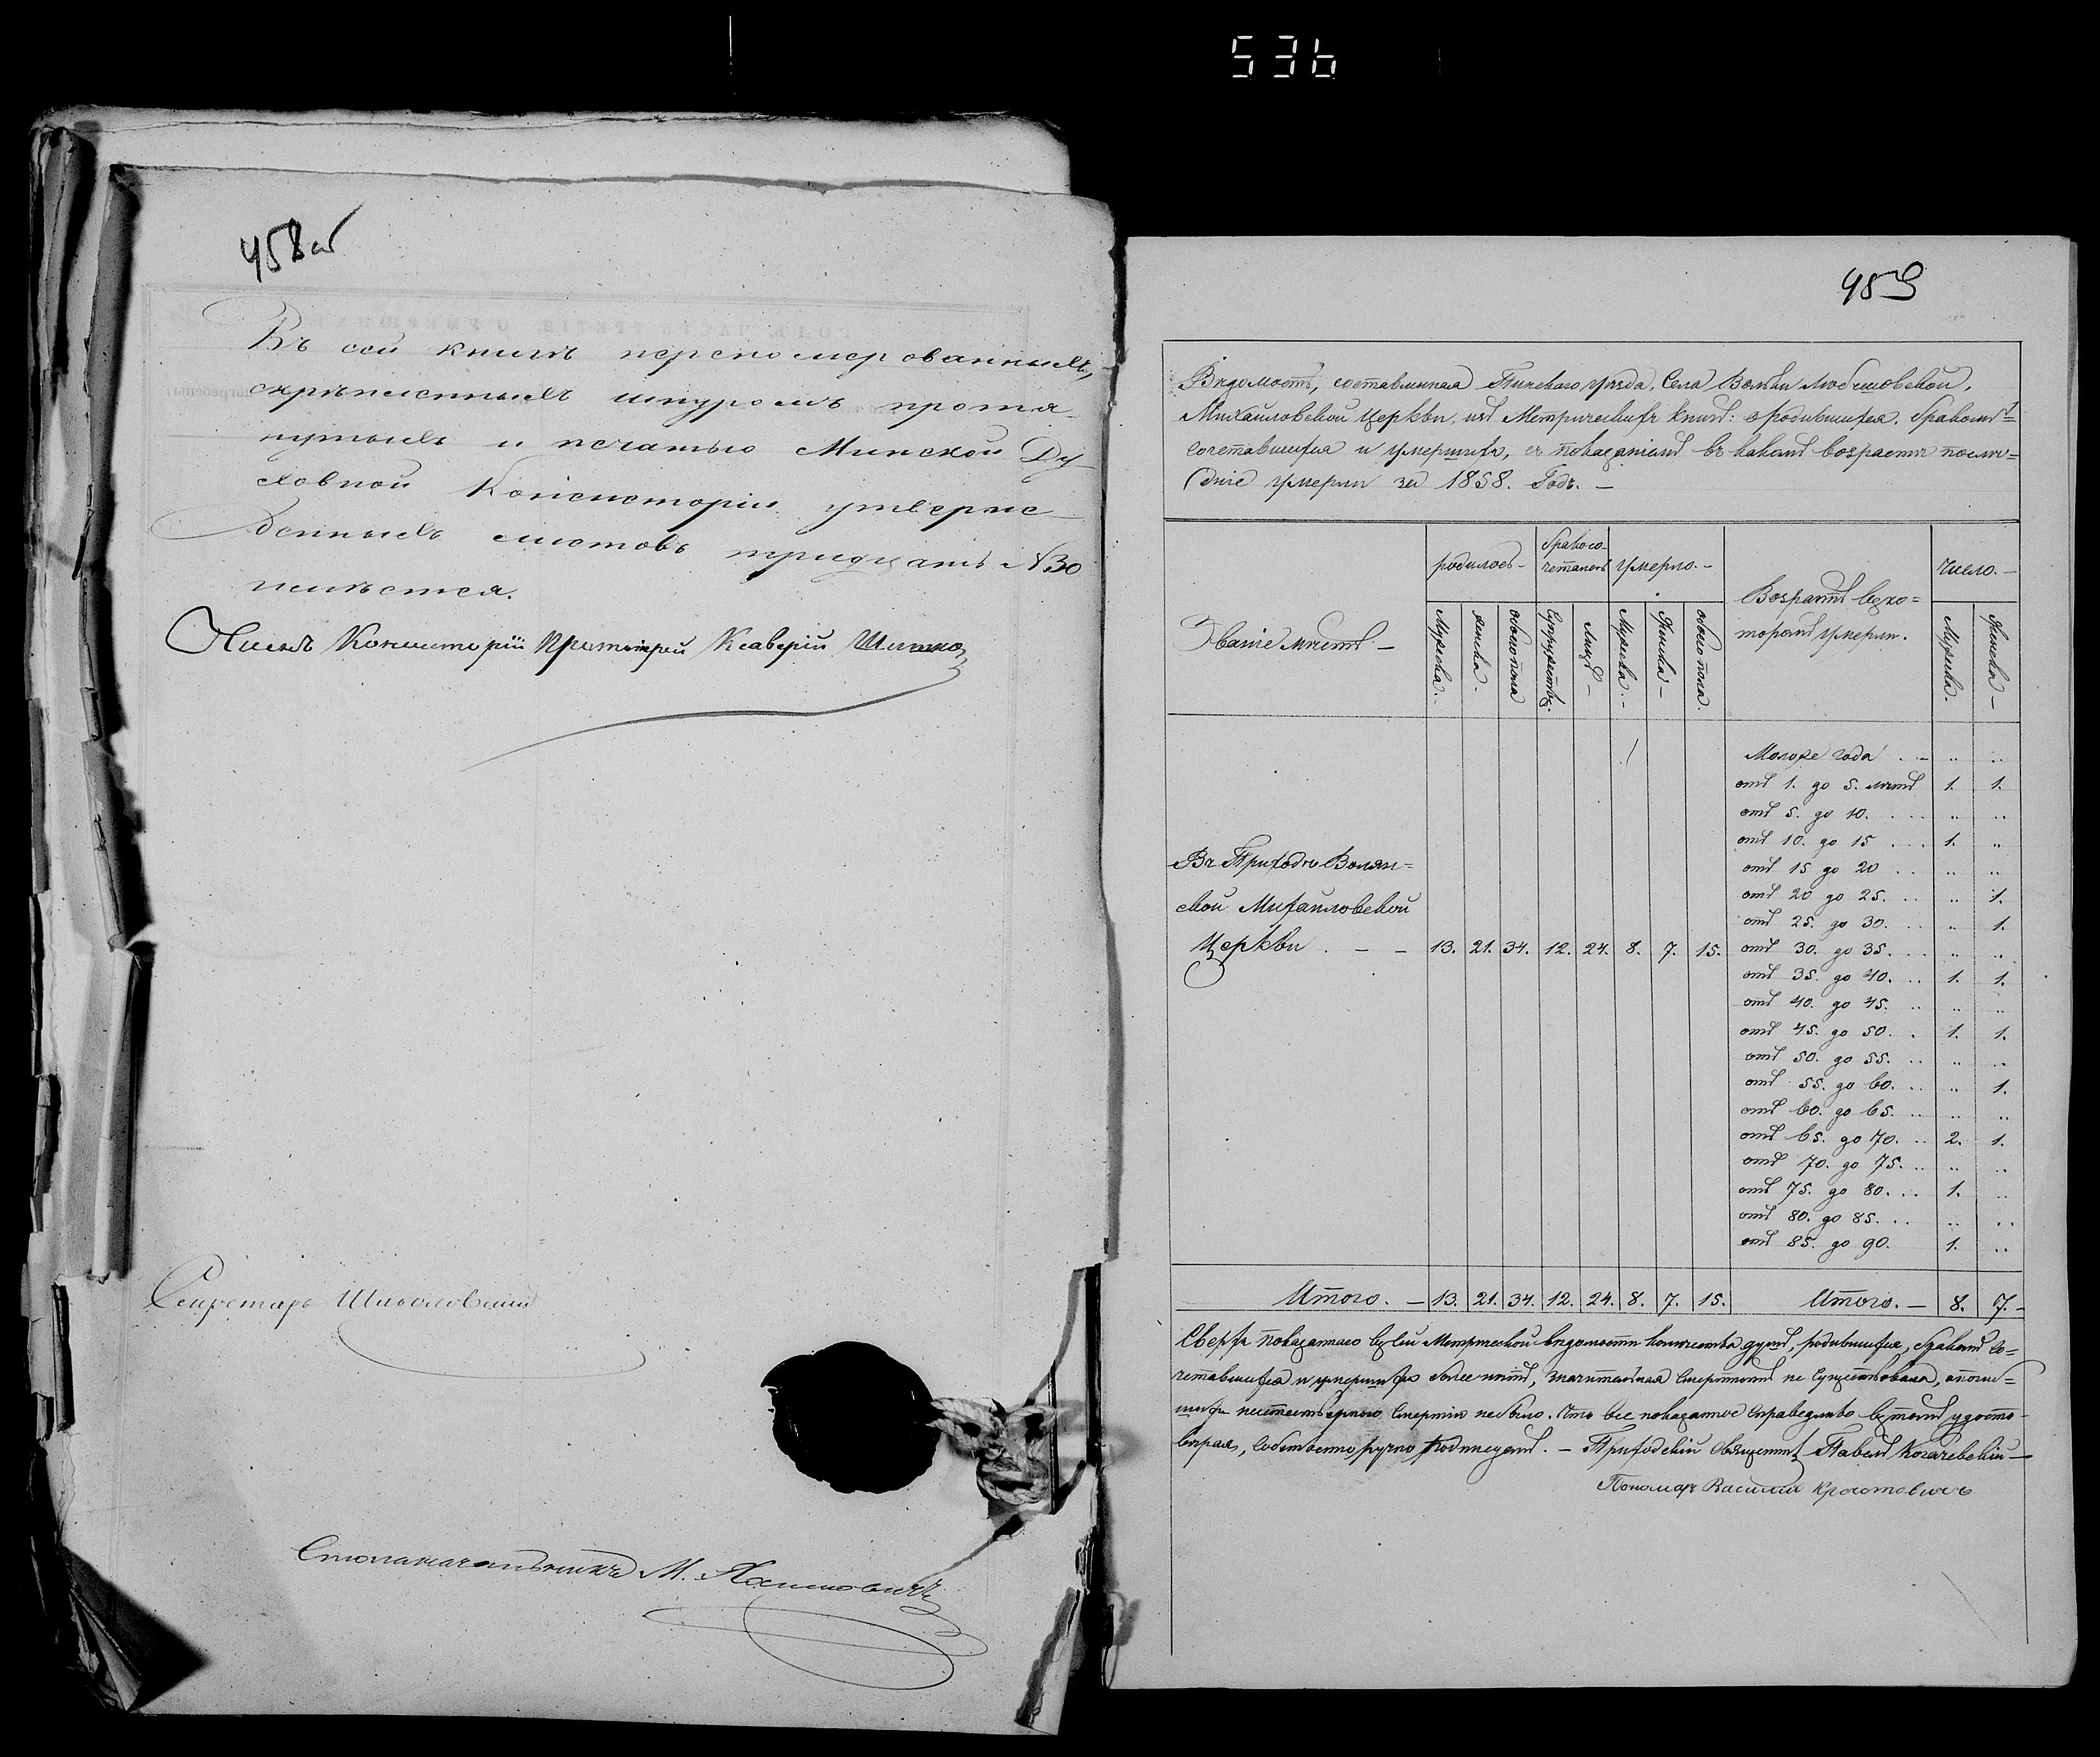 536
458 об
Въ сей книгѣ перенумерованныхъ,
скрѣпленныхъ шнуромъ протя
нутыхъ и печатью Минской Ду
ховной Консисторіи утверж
денныхъ листовъ тридцать №30
имѣется.
Членъ Консисторіи Протоіерей Ксаверій
Секретарь
Столоначальникъ М.
459
Вѣдомость, составленная Пинскаго уѣзда, Села Волки Любешовской,
Михайловской Церкви, изъ Метрическихъ книгъ: о родившихся, бракомъ=
сочетавшихся и умершихъ, съ показаніемъ въ какомъ возрастѣ послѣ=
дніе умерли за 1858. Годъ. —
Званіе мѣстъ —
родилось —
бракосо-
четалось
умерло. —
Возрастъ въ ко=
торомъ умерли.
число. —
Мужеска. женска. обоего пола Супружествъ. Лицъ — Мужеска. — Женска — обоего пола. Мужеска. Женска —
Моложе года . — .. ..
отъ 1. до 5. лѣтъ 1. 1.
отъ 5. до 10. . . . .. ..
отъ 10. до 15 . . . 1. ..
отъ 15 до 20 . . .. ..
отъ 20 до 25. . . .. 1.
отъ 25. до 30. . . .. 1.
Въ Приходѣ Волян=
ской Михайловской
Церкви . — — 13. 21. 34. 12. 24. 8. 7. 15. отъ 30. до 35. . . . .. ..
отъ 35. до 40. . . 1. 1.
отъ 40. до 45. .. .. ..
отъ 45. до 50. . 1. 1.
отъ 50. до 55. .. .. ..
отъ 55. до 60. . . .. 1.
отъ 60. до 65. .. .. ..
отъ 65. до 70. .. 2. 1.
отъ 70. до 75. .. .. ..
отъ 75. до 80. . . 1. ..
отъ 80. до 85. . . .. ..
отъ 85. до 90. 1. ..
Итого. — 13. 21. 34. 12. 24. 8. 7. 15. Итого. — 8. 7. —
Сверхъ показаннаго въ сей Метрической вѣдомости количества душъ, родившихся, бракомъ со=
четавшихся и умершихъ болѣе нѣтъ, значительная смертность не существовала, и погиб=
шихъ неестественною смертію небыло. Что все показанное справедливо въ томъ удосто
вѣряя, собственноручно подписуемъ. — Приходскій Священникъ Павелъ Когачевскій —
Пономарь Василій